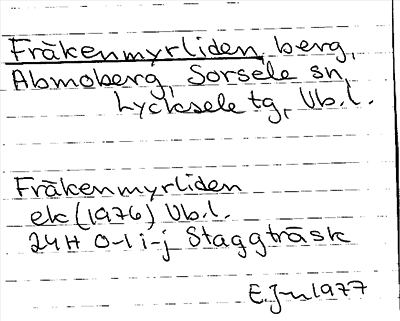 Fräkenmyrliden, berg,
Abmoberg, Sorsele sn,
Lycksele tg, Vb.l.
Fräkenmyrliden
ek (1976) Vb.l.
24H 0-1 i-j Staggträsk
E.Jn 1977